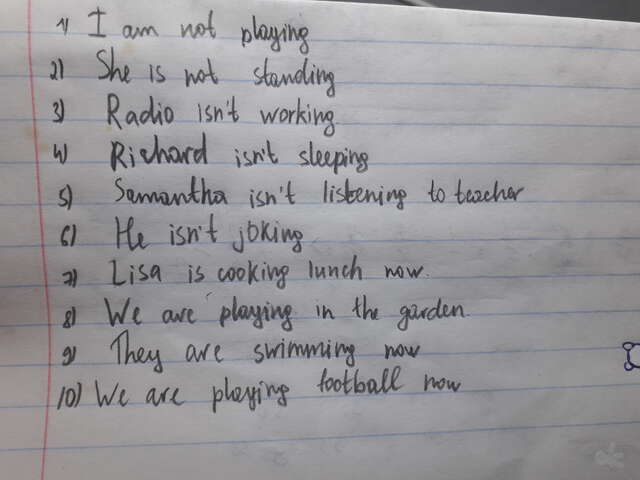 1) I am not playing
2) She is not standing
3) Radio isn't working
4) Richard isn't sleeping
5) Samantha isn't listening to teacher
6) He isn't joking
7) Lisa is cooking lunch now.
8) We are playing in the garden.
9) They are swimming now
10) We are playing football now